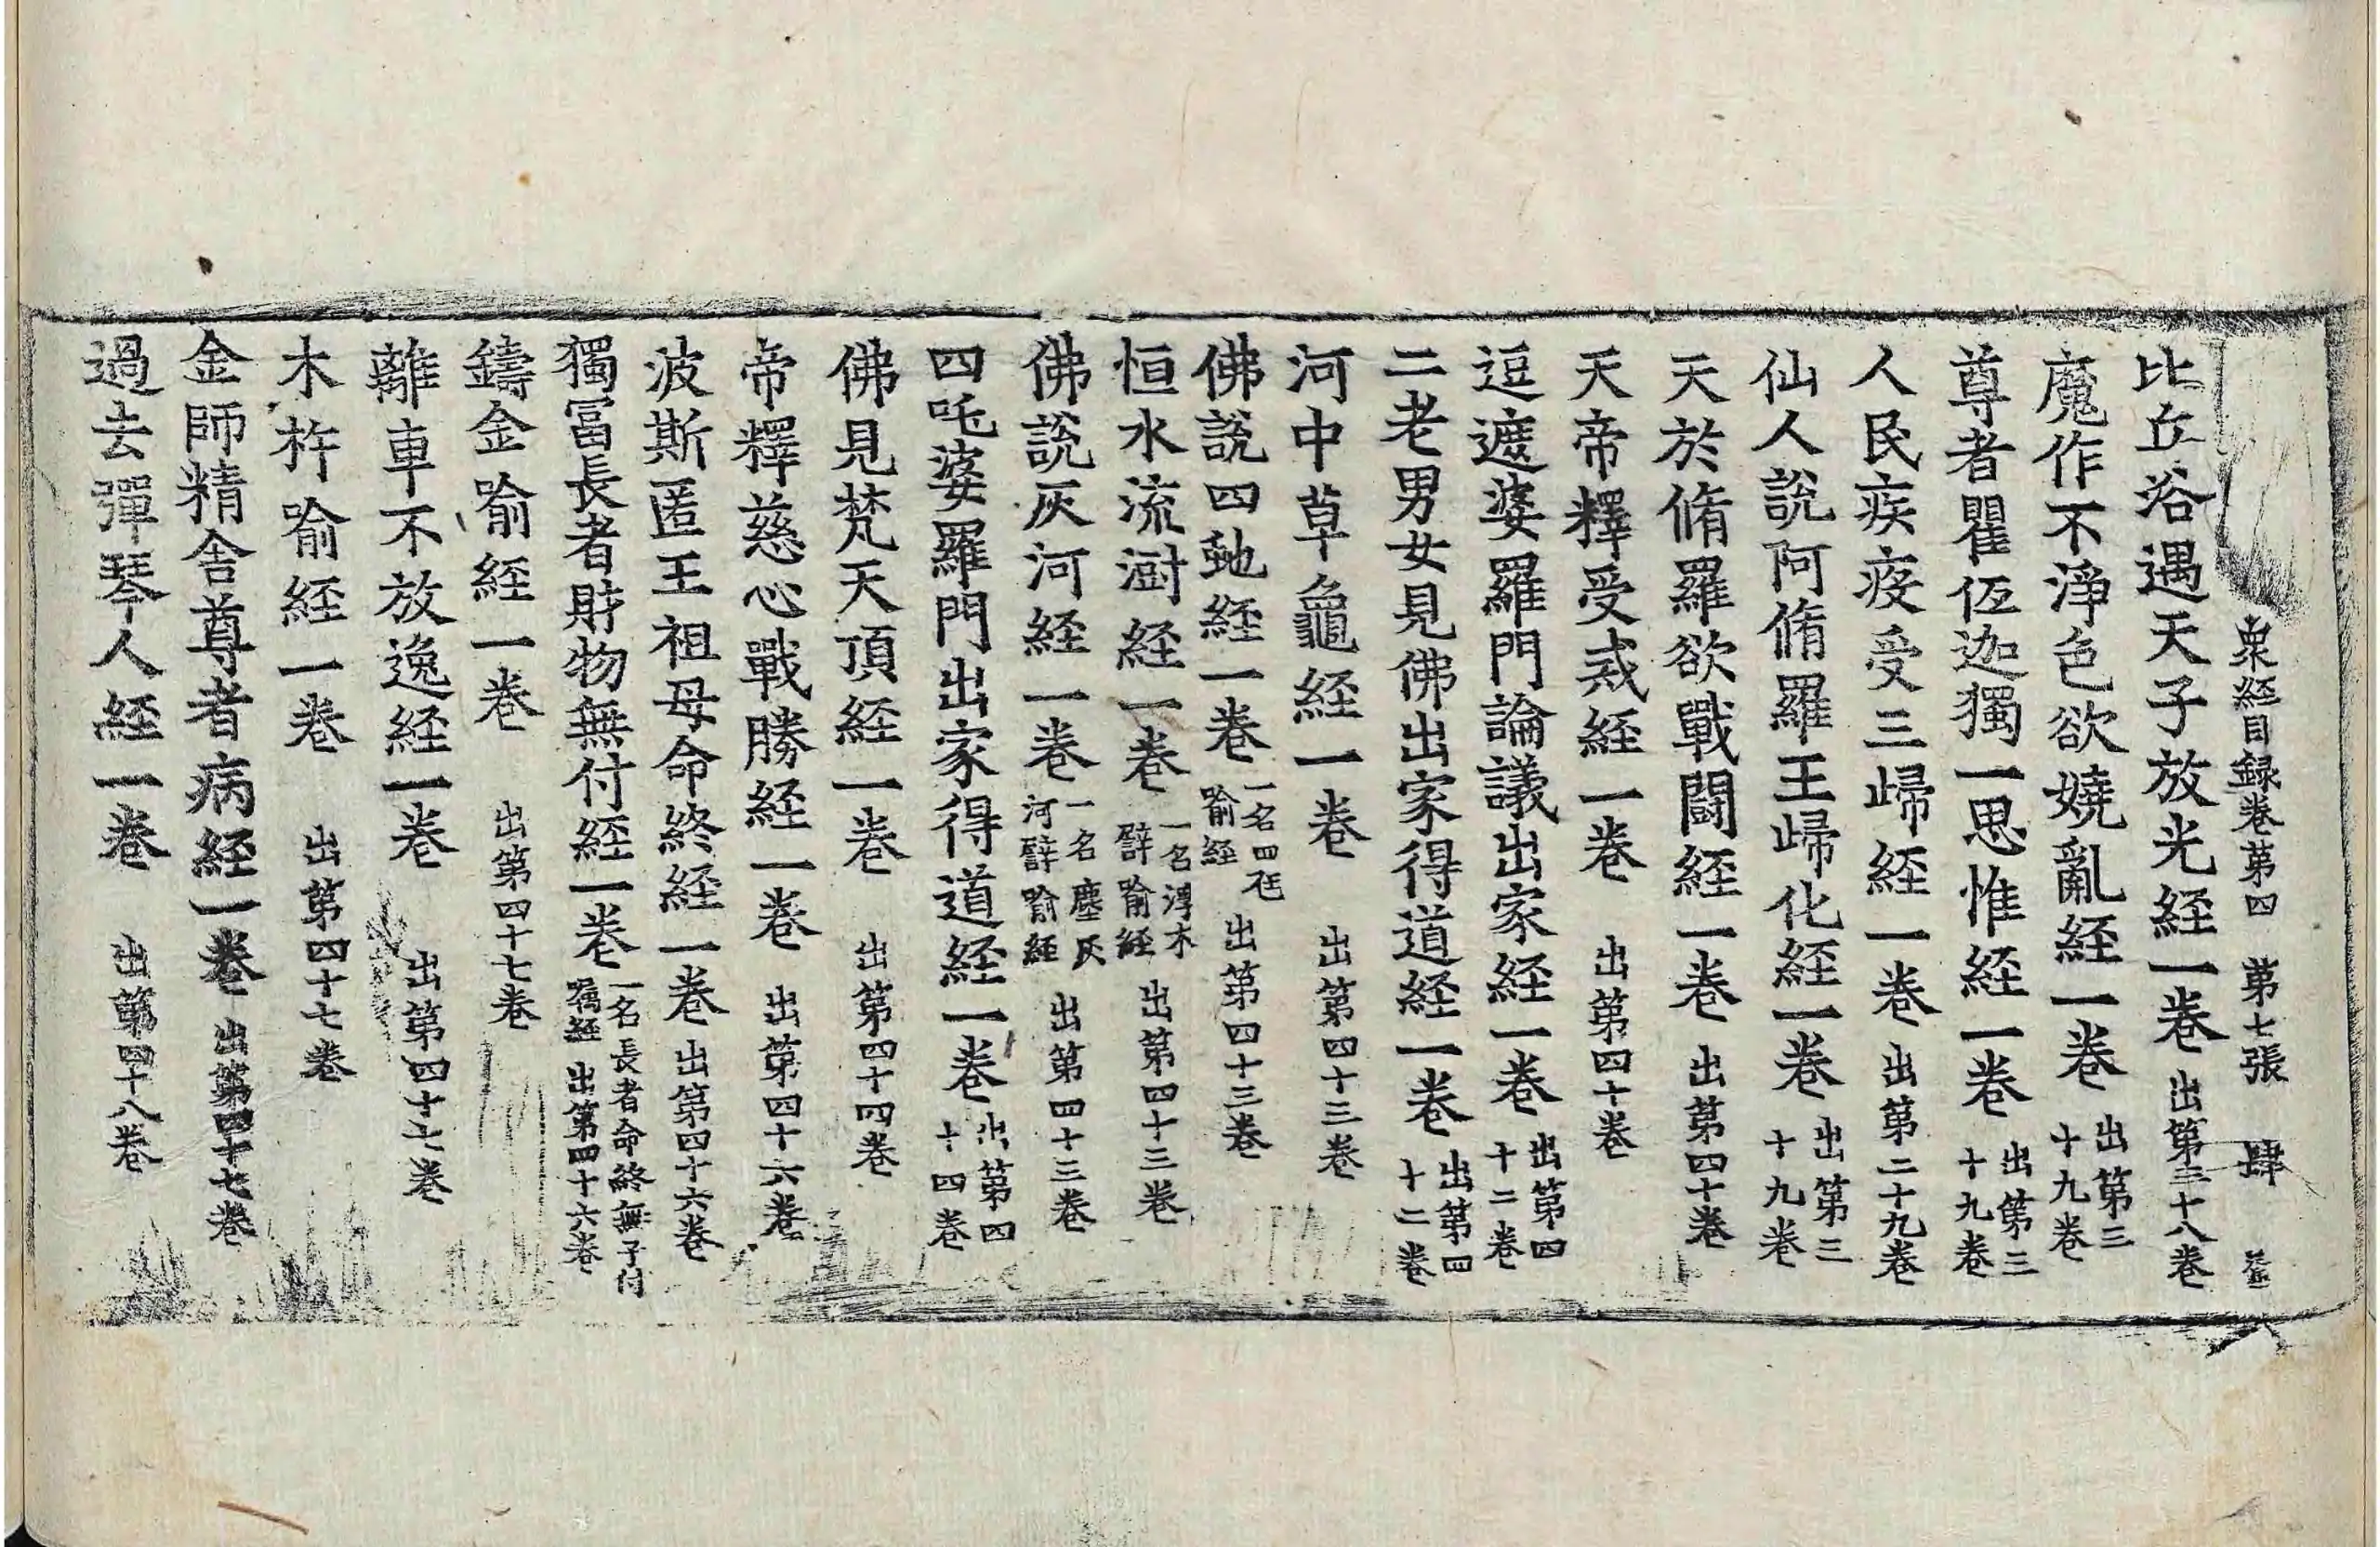 衆経目録卷第四 第七張 肆
比丘浴遇天子放光経一卷 出第三十八卷
魔作不淨色欲嬈亂経一卷 出第三十九卷
尊者瞿低迦獨一思惟経一卷 出第三十九卷
人民疾疫受三歸経一卷 出第二十九卷
仙人說阿脩羅王歸化経一卷 出第三十九卷
天於脩羅欲戰闘経一卷 出第四十卷
天帝釋受戒経一卷 出第四十卷
逗遮婆羅門論議出家経一卷 出第四十二卷
二老男女見佛出家得道経一卷 出第四十二卷
河中草龜経一卷 出第四十三卷
佛說四虵経一卷 一名四虵喻経 出第四十三卷
恒水流澍経一卷 一名浮木譬喻経 出第四十三卷
佛說灰河経一卷 一名塵灰河譬喻経 出第四十三卷
四吒婆羅門出家得道経一卷 出第四十四卷
佛見梵天頂経一卷 出第四十四卷
帝釋慈心戰勝経一卷 出第四十六卷
波斯匿王祖母命終経一卷 出第四十六卷
獨冨長者財物無付経一卷 一名長者命終無子付囑経 出第四十六卷
鑄金喻経一卷 出第四十七卷
離車不放逸経一卷 出第四十七卷
木杵喻経一卷 出第四十七卷
金師精舍尊者病経一卷 出第四十七卷
過去彈琴人経一卷 出第四十八卷